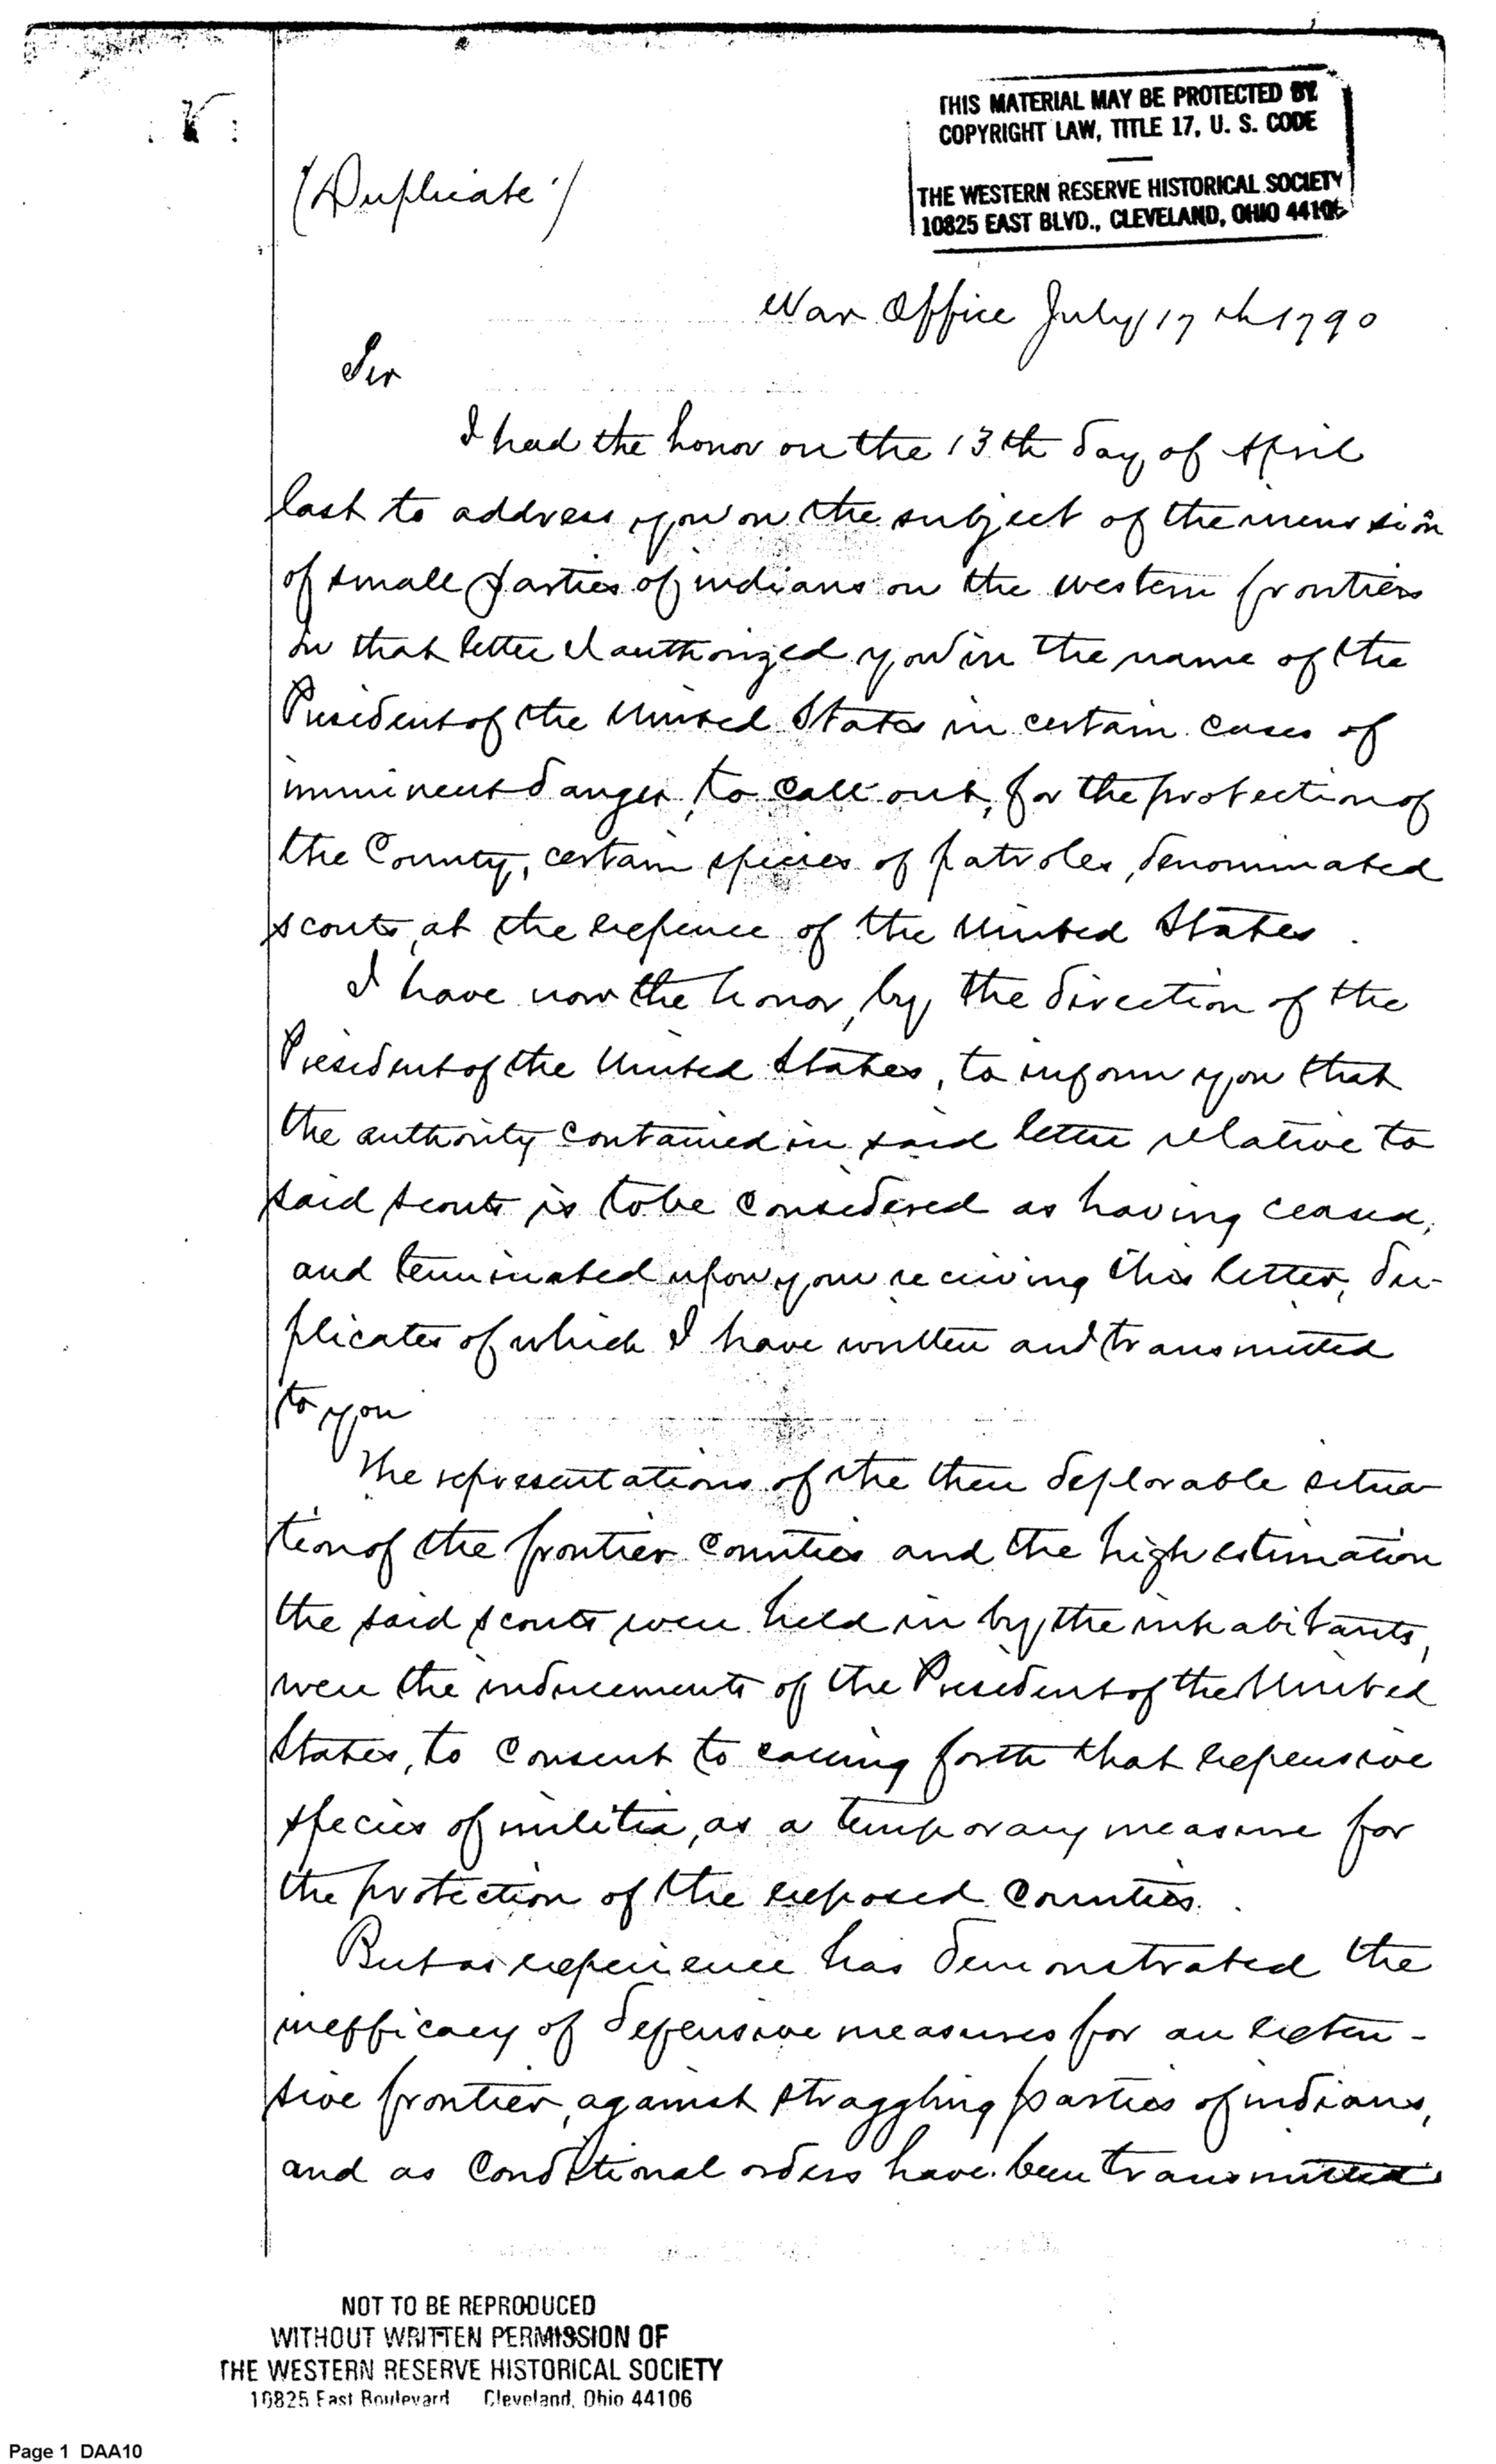 THIS MATERIAL MAY BE PROTECTED BY
COPYRIGHT LAW, TITLE 17, U. S. CODE
THE WESTERN RESERVE HISTORICAL SOCIETY
10825 EAST BLVD., CLEVELAND, OHIO 44106
(Duplicate)
War Office July 17th 1790
Sir
I had the honor on the 13th day of April
last to address you on the subject of the incursion
of small parties of indians on the western frontiers
in that letter I authorized you in the name of the
President of the United States in certain cases of
imminent danger, to call out, for the protection of
the County, certain species of patroles, denominated
scouts, at the expence of the United States.
I have now the honor, by the direction of the
President of the United States, to inform you that
the authority contained in said letter relative to
said scouts is to be considered as having ceased,
and terminated upon your receiving this letter, du-
plicates of which I have written and transmitted
to you
The representations of the then deplorable situa-
tion of the frontier Counties and the high estimation
the said scouts were held in by the inhabitants,
were the inducements of the President of the United
States, to consent to calling forth that expensive
species of militia, as a temporary measure for
the protection of the exposed Counties.
But as experience has demonstrated the
inefficacy of defensive measures for an exten-
sive frontier, against straggling parties of indians,
and as conditional orders have been transmitted
NOT TO BE REPRODUCED
WITHOUT WRITTEN PERMISSION OF
THE WESTERN RESERVE HISTORICAL SOCIETY
10825 East Boulevard Cleveland, Ohio 44106
Page 1 DAA10